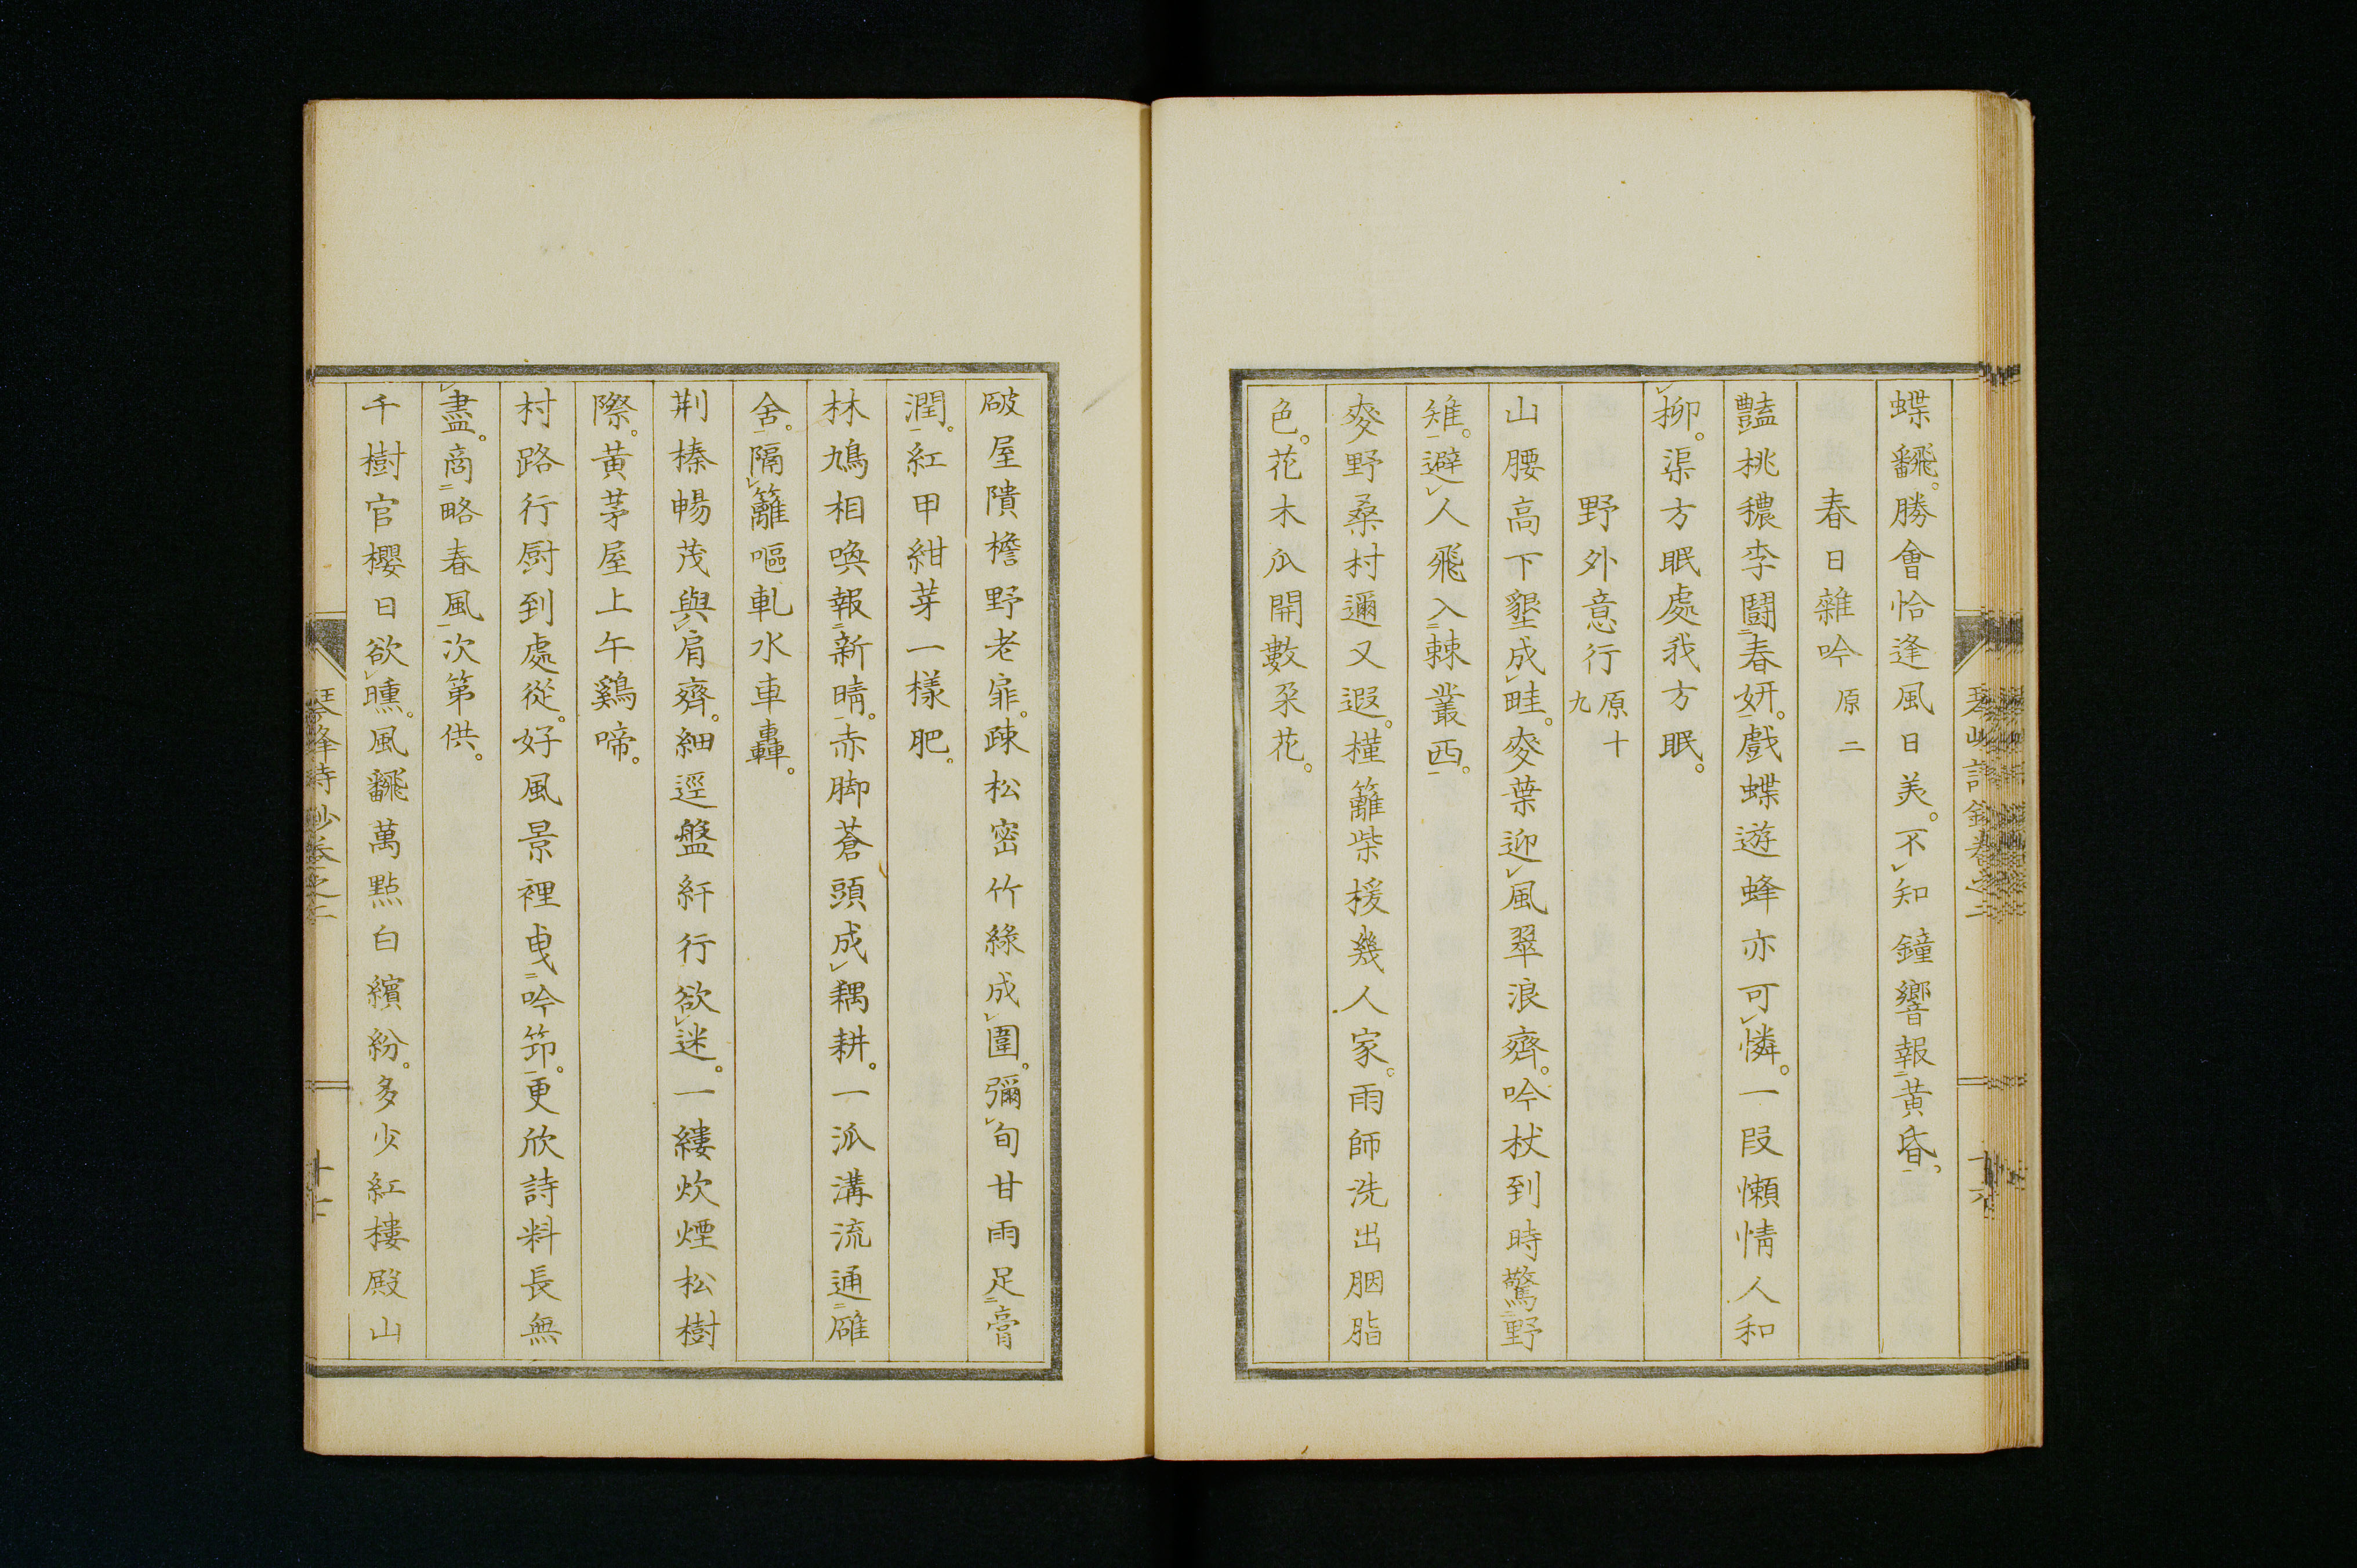 蝶飜。勝會恰逢風日美。不レ知鐘響報二黄昏一。
春日雜吟 原二
豔桃穠李鬪二春妍一。戲蝶遊蜂亦可レ憐。一段懶情人和
レ柳。渠方眠處我方眠。
野外意行 原十九
山腰高下墾成レ畦。麥葉迎レ風翠浪齊。吟杖到時驚二野
雉一。避レ人飛入二棘叢西一。
麥野桑村邇又遐。槿籬柴援幾人家。雨師洗出胭脂
色。花木瓜開數朶花。
破屋隤檐野老扉。疎松密竹綠成レ圍。彌レ旬甘雨足二膏
潤一。紅甲紺芽一樣肥。
林鳩相喚報二新晴一。赤脚蒼頭成レ耦耕。一派溝流通二碓
舍一。隔レ籬嘔軋水車轟。
荆榛暢茂與レ肩齊。細逕盤紆行欲レ迷。一縷炊煙松樹
際。黃茅屋上午鷄啼。
村路行厨到處從。好風景裡曳二吟筇一。更欣詩料長無
レ盡。商二略春風一次第供。
千樹官櫻日欲レ曛。風飜萬點白繽紛。多少紅樓殿山